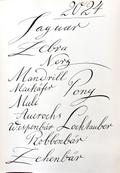 2024
Jaguar
Zebra
Nerz
Mandrill
Maikäfer
Pony
Muli
Auerochs
Wespenbär Lochtauber
Robbenbär
Zehenbär